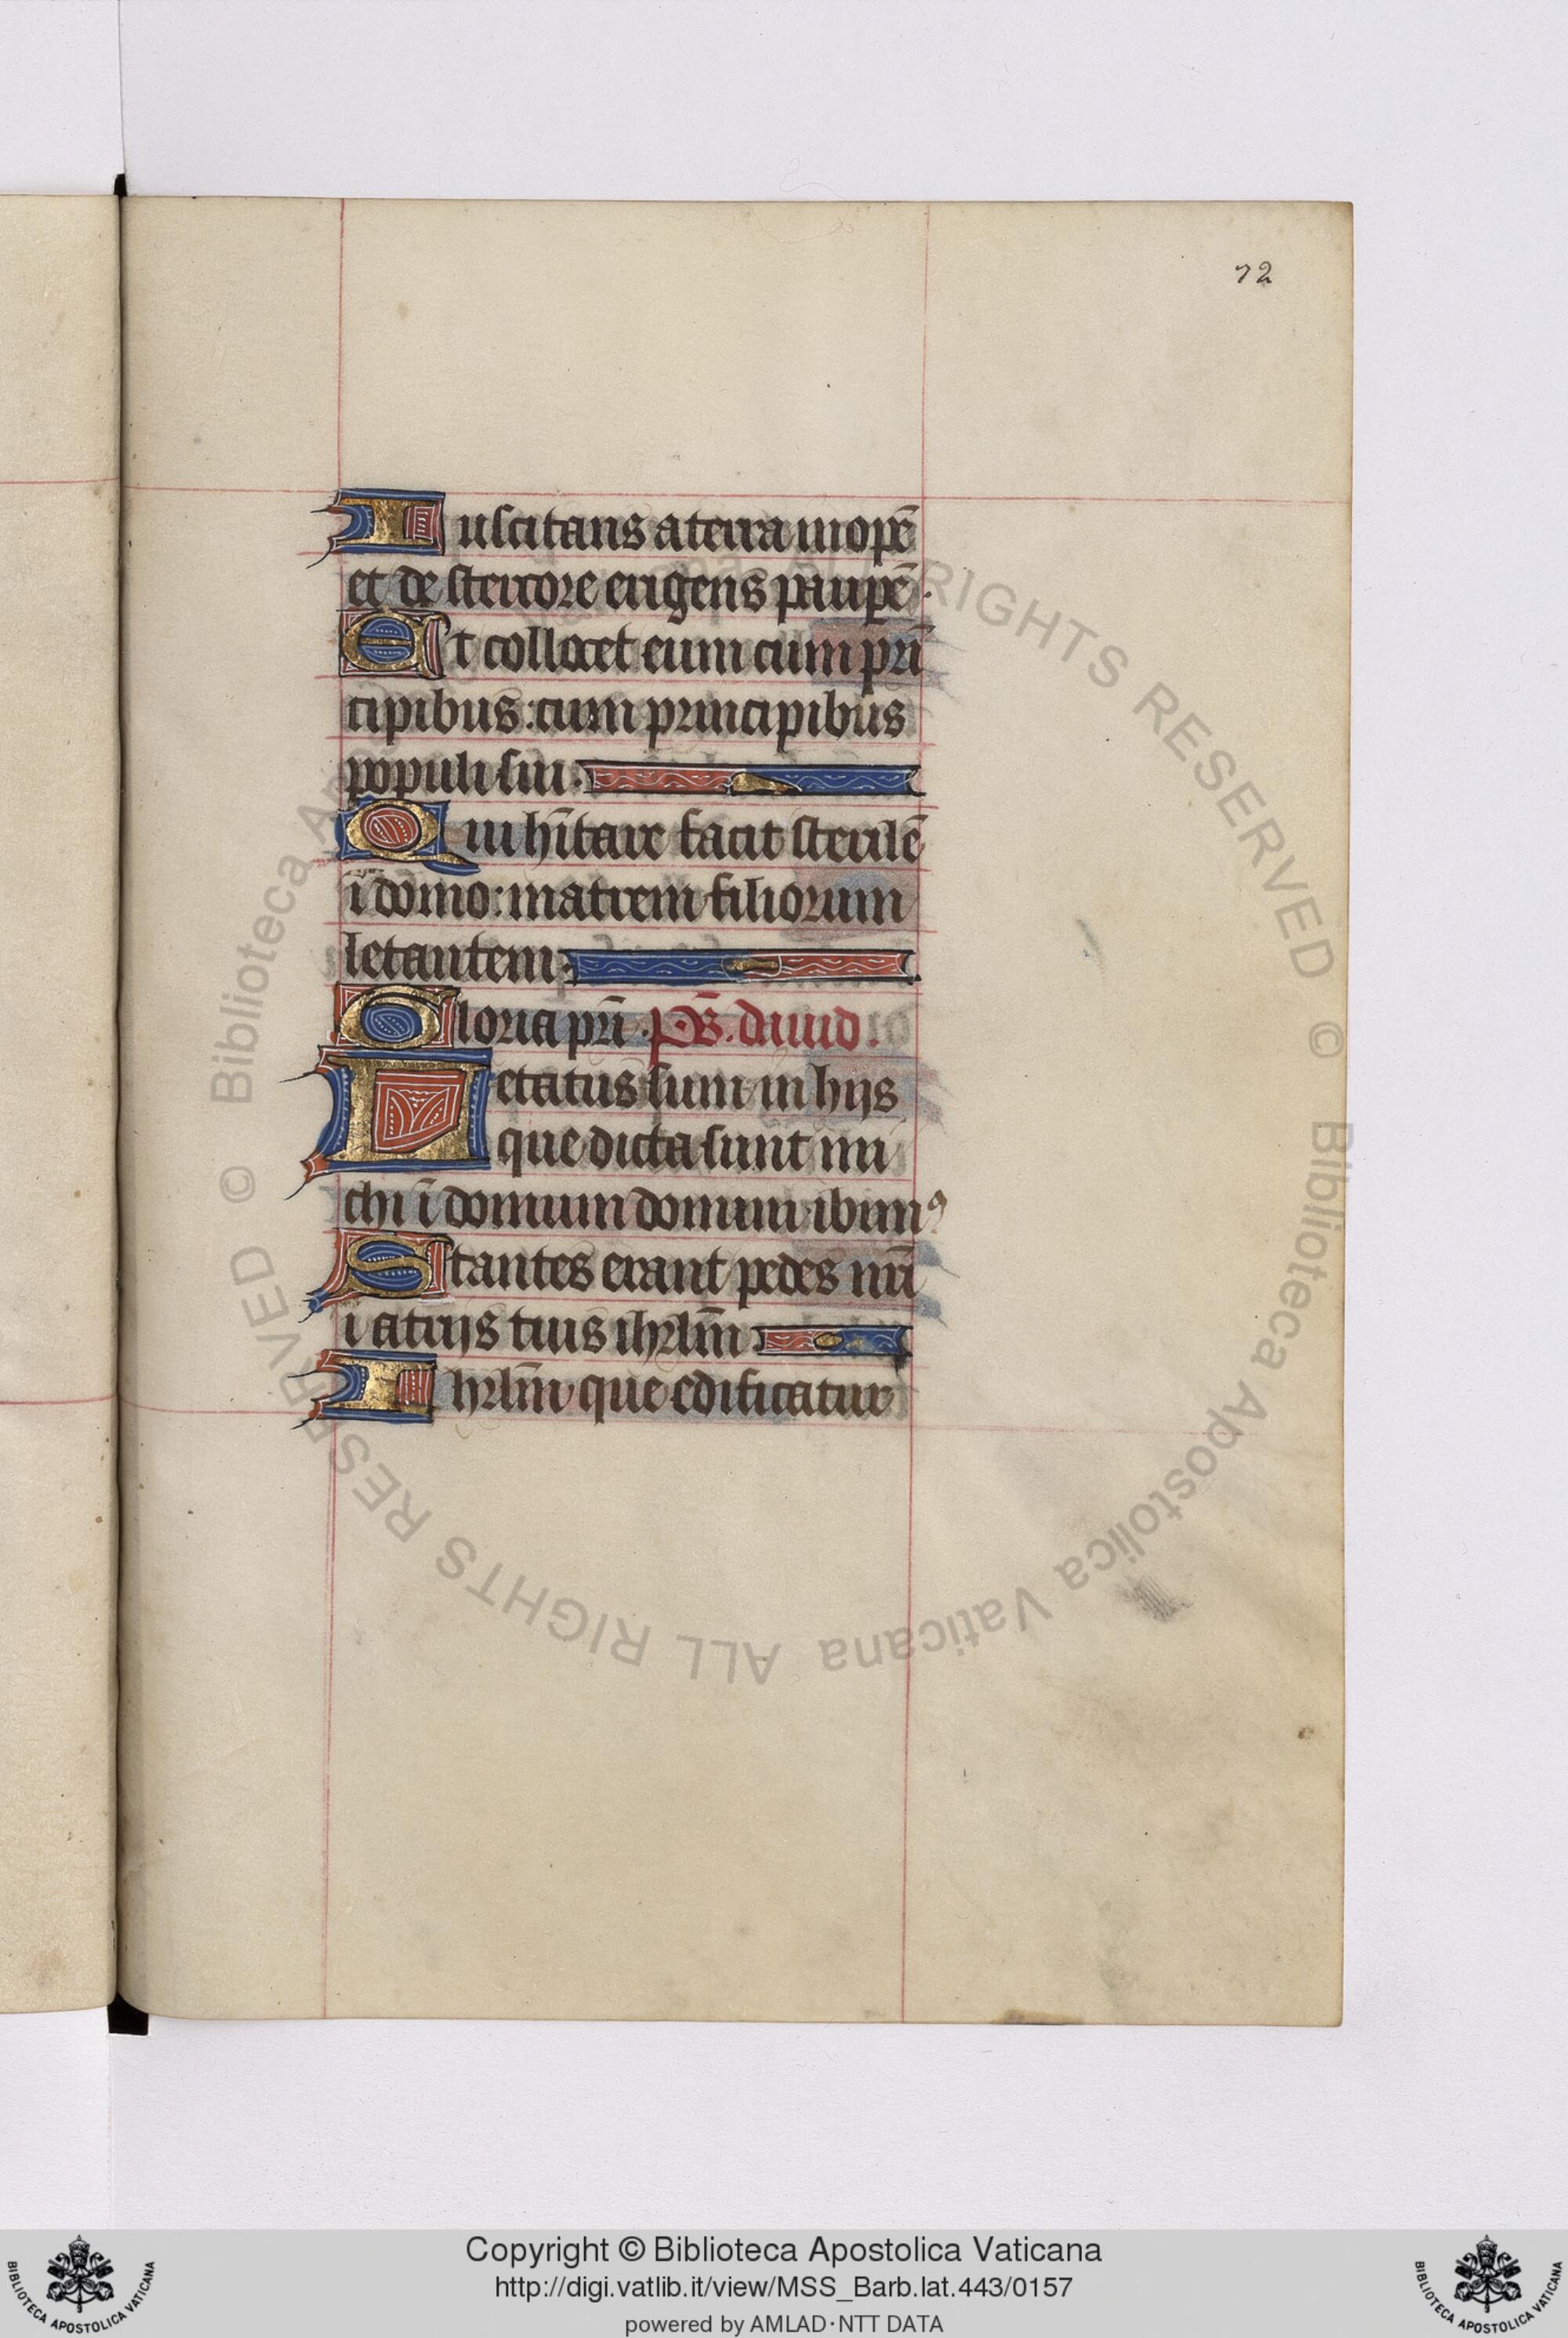 72
Iuscitans a terra inopē
et de stercore erigens paupē.
Et collocet eum cum pri
cipibus: cum principibus
populi sui.
Qui hītare facit sterilē
ī domo: matrem filiorum
letantem.
Gloria pri. Ps. dauid.
Letatus sum in hijs
que dicta sunt mi
chi ī domum domini ibimꝰ
Stantes erant pedes nrī
ī atrijs tuis ihrlm̄
Ihrlm̄ que edificatur
© Biblioteca Apostolica Vaticana ALL RIGHTS RESERVED © Biblioteca Apostolica Vaticana ALL RIGHTS RESERVED
Copyright © Biblioteca Apostolica Vaticana
http://digi.vatlib.it/view/MSS_Barb.lat.443/0157
powered by AMLAD·NTT DATA
BIBLIOTECA APOSTOLICA VATICANA
BIBLIOTECA APOSTOLICA VATICANA